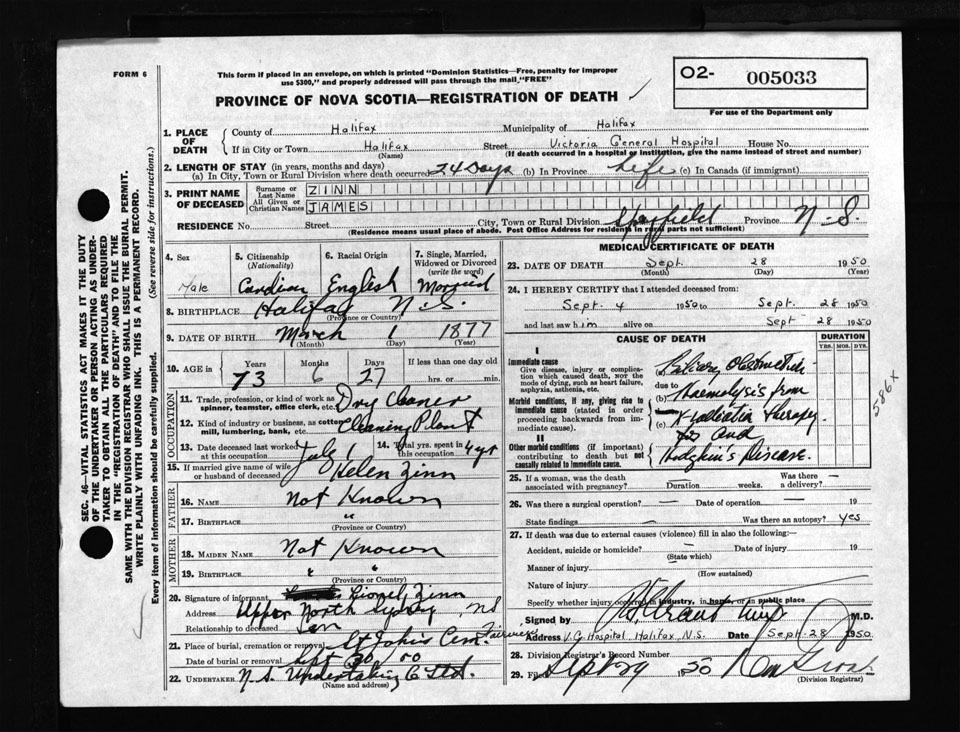 FORM 6
This form if placed in an envelope, on which is printed "Dominion Statistics—Free, penalty for improper
use $300," and properly addressed will pass through the mail, "FREE"
PROVINCE OF NOVA SCOTIA—REGISTRATION OF DEATH ✓
O2- 005033
For use of the Department only
SEC. 46—VITAL STATISTICS ACT MAKES IT THE DUTY
OF THE UNDERTAKER OR PERSON ACTING AS UNDER-
TAKER TO OBTAIN ALL THE PARTICULARS REQUIRED
IN THE "REGISTRATION OF DEATH" AND TO FILE THE
SAME WITH THE DIVISION REGISTRAR WHO SHALL ISSUE THE BURIAL PERMIT.
WRITE PLAINLY WITH UNFADING INK. THIS IS A PERMANENT RECORD.
Every item of information should be carefully supplied. (See reverse side for instructions.)
1. PLACE OF DEATH
County of Halifax Municipality of Halifax
If in City or Town Halifax Street Victoria General Hospital House No.
(Name) (If death occurred in a hospital or institution, give the name instead of street and number)
2. LENGTH OF STAY (in years, months and days)
(a) In City, Town or Rural Division where death occurred 24 Days (b) In Province Life (c) In Canada (if immigrant)
3. PRINT NAME OF DECEASED
Surname or Last Name ZINN
All Given or Christian Names JAMES
RESIDENCE No. Street City, Town or Rural Division Spryfield Province N.S.
(Residence means usual place of abode. Post Office Address for residents in rural parts not sufficient)
4. Sex Male
5. Citizenship (Nationality) Candian
6. Racial Origin English
7. Single, Married, Widowed or Divorced (write the word) Married
8. BIRTHPLACE Halifax N.S.
(Province or Country)
9. DATE OF BIRTH March 1 1877
(Month) (Day) (Year)
10. AGE in Years 73 Months 6 Days 27 If less than one day old hrs. or min.
OCCUPATION
11. Trade, profession, or kind of work as spinner, teamster, office clerk, etc. Dry Cleaner
12. Kind of industry or business, as cotton mill, lumbering, bank, etc. Cleaning Plant
13. Date deceased last worked at this occupation July 1
14. Total yrs. spent in this occupation 4 yr
15. If married give name of wife or husband of deceased Helen Zinn
FATHER
16. NAME Not Known
17. BIRTHPLACE "
(Province or Country)
MOTHER
18. MAIDEN NAME Not Known
19. BIRTHPLACE " "
(Province or Country)
20. Signature of informant Lionel Zinn
Address Upper North Sydney NS
Relationship to deceased Son
21. Place of burial, cremation or removal St Johns Cem. Fairview
Date of burial or removal Sept 30
22. UNDERTAKER N.S. Undertaking Co Ltd.
(Name and address)
MEDICAL CERTIFICATE OF DEATH
23. DATE OF DEATH Sept. 28 1950
(Month) (Day) (Year)
24. I HEREBY CERTIFY that I attended deceased from:
Sept. 4 1950 to Sept. 28 1950
and last saw him alive on Sept 28 1950
CAUSE OF DEATH DURATION
YRS. MOS. DYS.
I
Immediate cause
Give disease, injury or complication which caused death, nor the mode of dying, such as heart failure, asphyxia, asthenia, etc.
Morbid conditions, if any, giving rise to immediate cause (stated in order proceeding backwards from immediate cause).
II
Other morbid conditions (if important) contributing to death but not causally related to immediate cause.
due to
(b) Haemolysis from
(c) X-radiation therapy
and
Hodgkin's Disease.
25. If a woman, was the death associated with pregnancy? Duration weeks. Was there a delivery? —
26. Was there a surgical operation? — Date of operation — 19
State findings — Was there an autopsy? Yes
27. If death was due to external causes (violence) fill in also the following:—
Accident, suicide or homicide? — Date of injury 19
(State which)
Manner of injury
(How sustained)
Nature of injury
Specify whether injury occurred in industry, in home, or in public place
Signed by M.D.
Address V.G. Hospital Halifax N.S. Date Sept. 28 1950.
28. Division Registrar's Record Number
29. Filed Sept 29 1950
(Division Registrar)